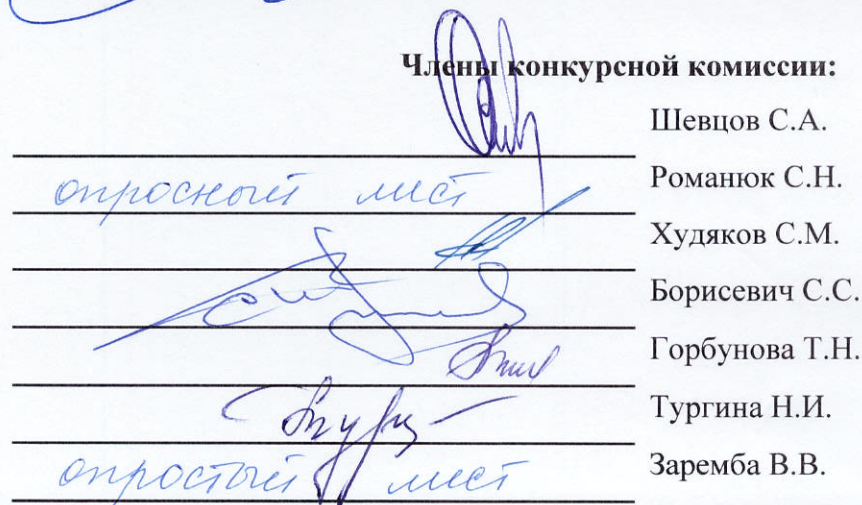 Члены конкурсной комиссии:
Шевцов С.А.
опросный лист Романюк С.Н.
Худяков С.М.
Борисевич С.С.
Горбунова Т.Н.
Тургина Н.И.
опростый лист Заремба В.В.